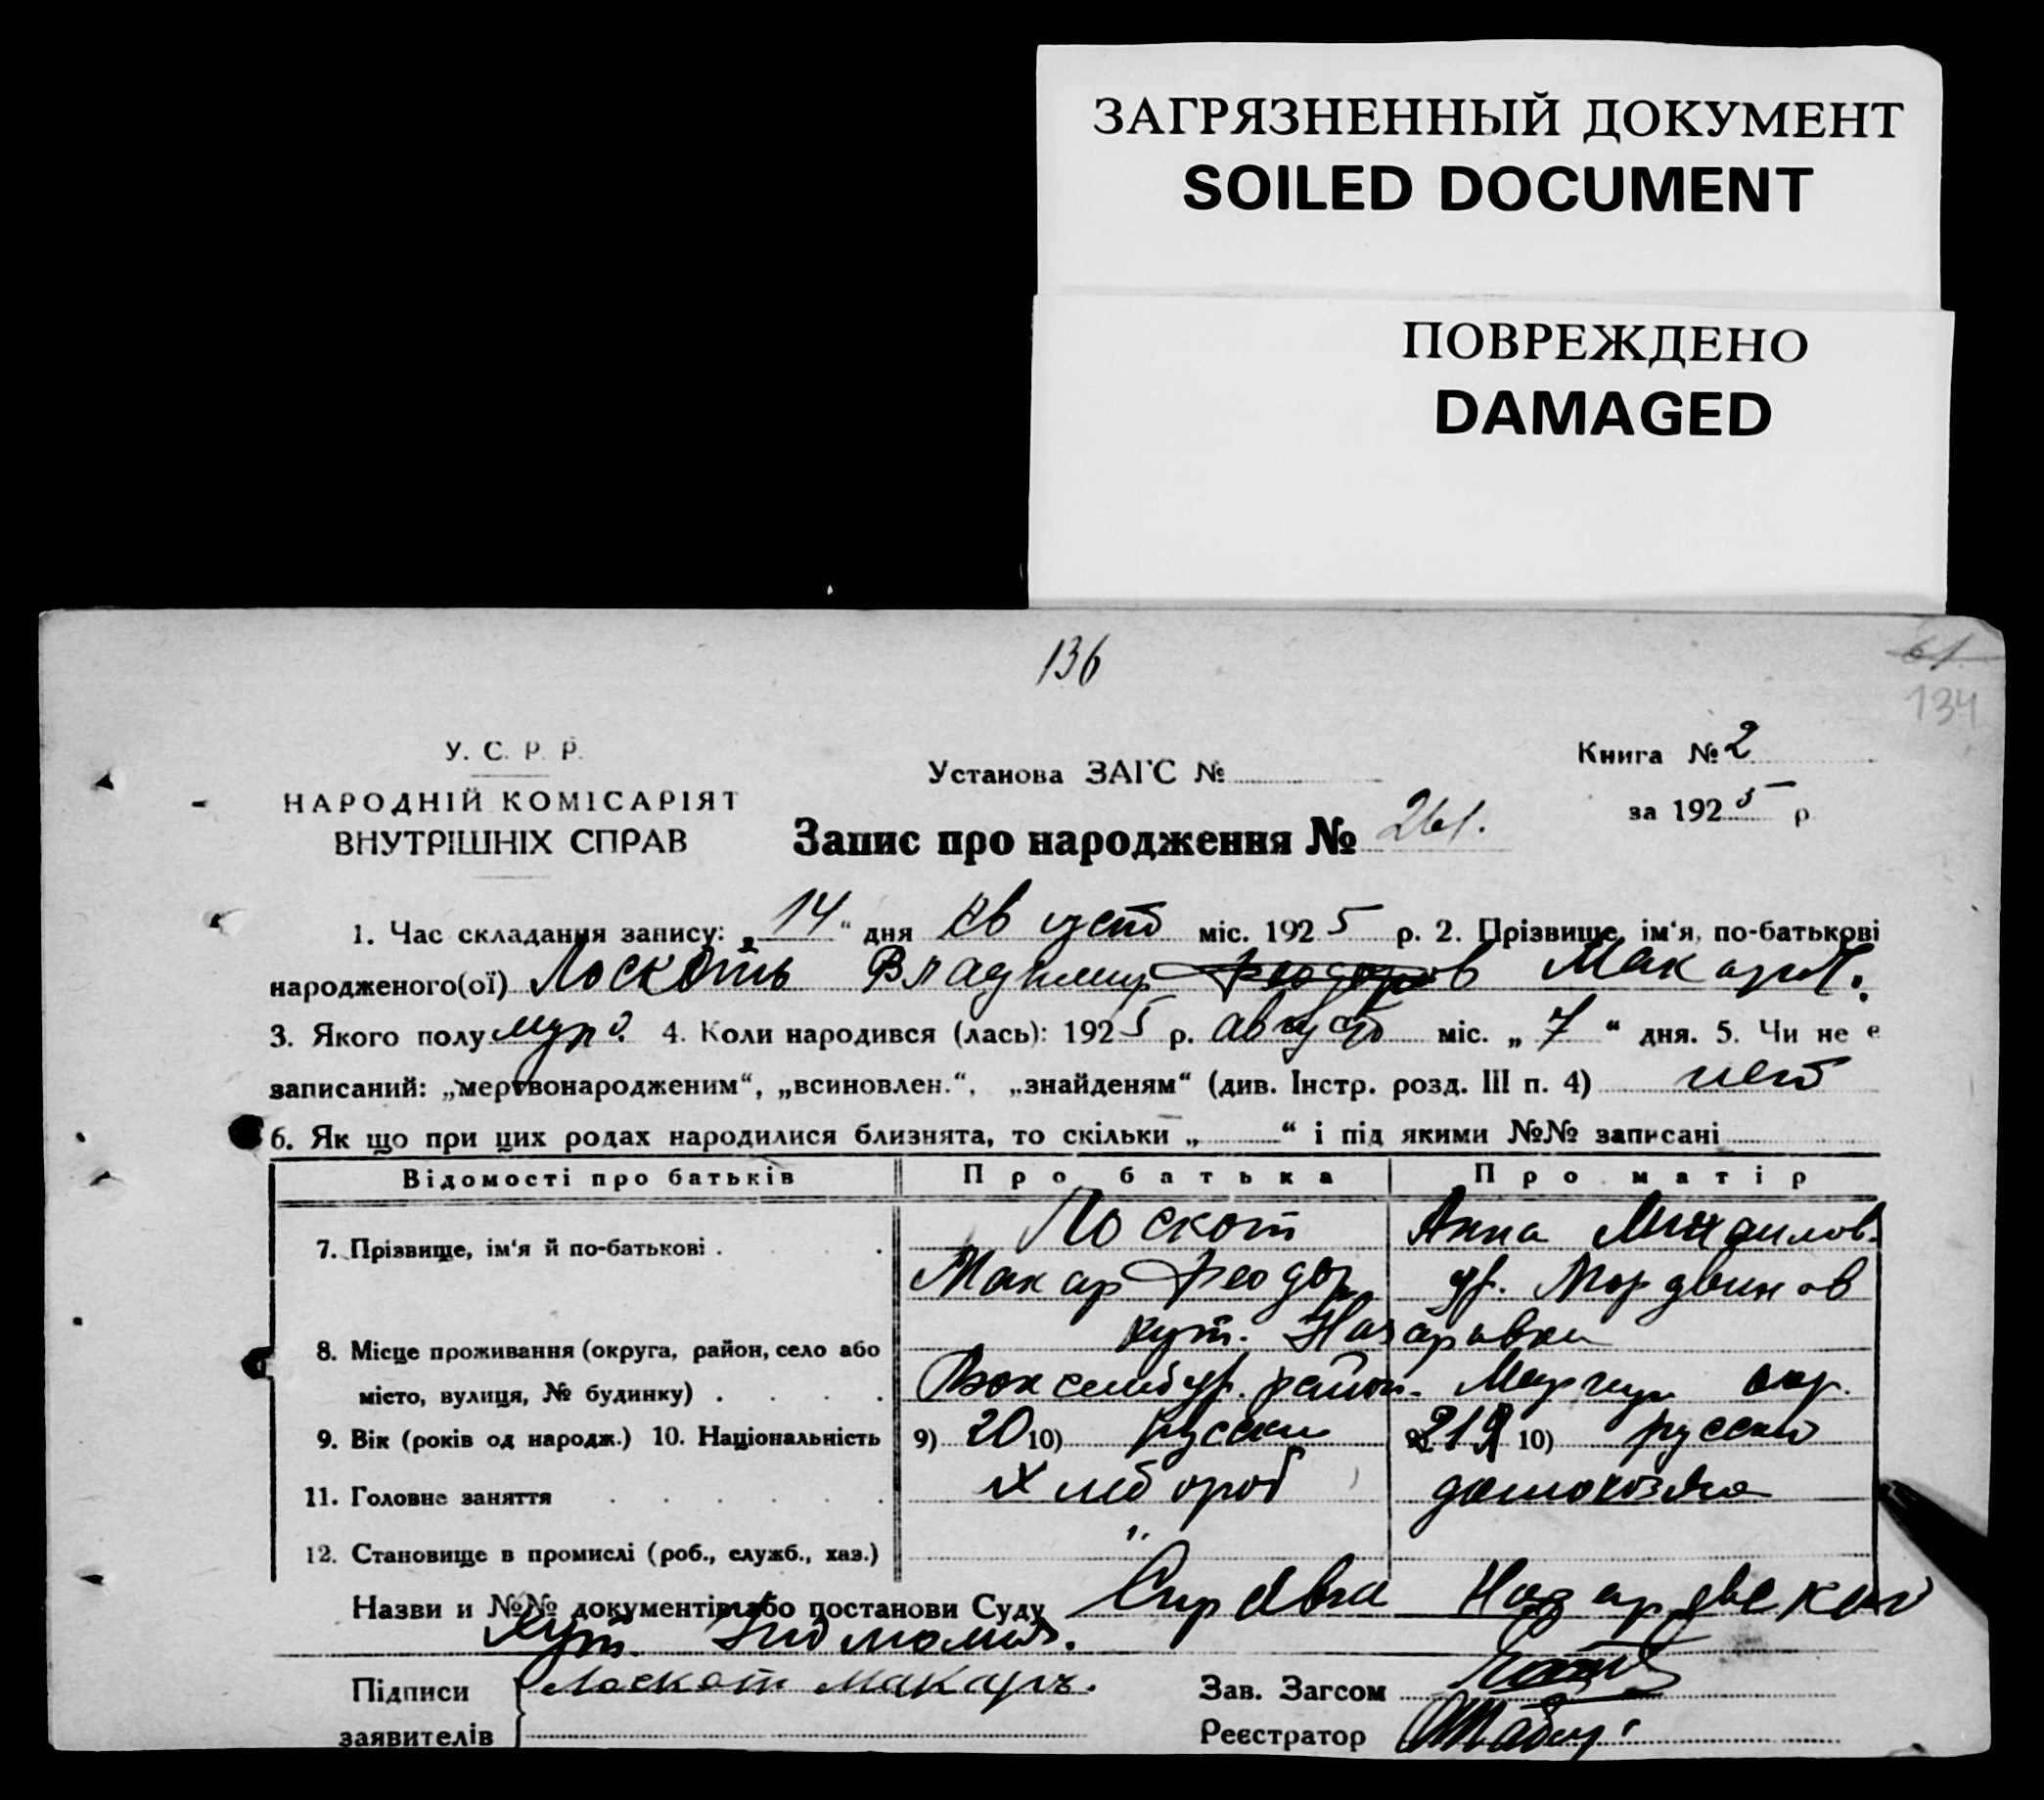 ЗАГРЯЗНЕННЫЙ ДОКУМЕНТ
SOILED DOCUMENT
ПОВРЕЖДЕНО
DAMAGED
136
61
134
У. С. Р. Р.
НАРОДНІЙ КОМІСАРІЯТ
ВНУТРІШНІХ СПРАВ
Установа ЗАГС №
Книга № 2
за 1925 р
Запис про народження № 261.
1. Час складання запису: „14“ дня август міс. 1925 р. 2. Прізвище, ім'я, по-батькові
народженого(ої) Лоскоть Владимир Феодоров Макаров.
3. Якого полу муж. 4. Коли народився (лась): 1925 р. август міс. „7“ дня. 5. Чи не є
записаний: „мертвонародженим“, „всиновлен.“, „знайденям“ (див. Інстр. розд. III п. 4) нет
6. Як що при цих родах народилися близнята, то скільки „ “ і під якими №№ записані
Відомості про батьків Про батька Про матір
7. Прізвище, ім'я й по-батькові . Лоскот Анна Михаилов.
Макар Феодор ур. Мордвинов
хут. Назаровка
8. Місце проживання (округа, район, село або
місто, вулиця, № будинку) . район. Мариуп окр.
9. Вік (років од народж.) 10. Національність 9) 20 10) русски 9) 21 10) русская
11. Головне заняття хлебороб домохозяйка
12. Становище в промислі (роб., служб., хаз.) "
Назви и №№ документів або постанови Суду Справка Назаровской
хут.
Підписи
заявителів
Лоскот Макаръ.
Зав. Загсом
Реєстратор